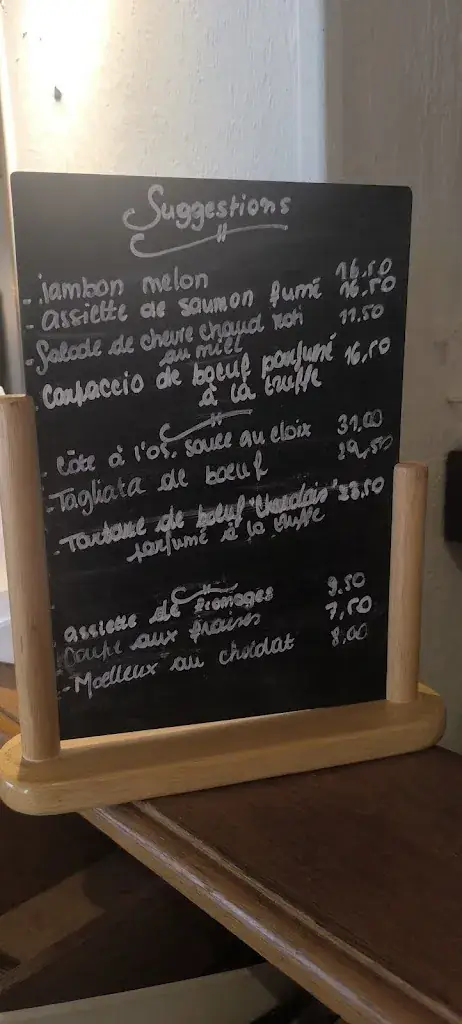 Suggestions
- Jambon melon 16,50
- assiette de saumon fumé 16,50
- Salade de chèvre chaud roti 11.50
au miel
Carpaccio de bœuf parfumé 16,50
à la truffe
- Côte à l'os, sauce au choix 31,00
- Tagliata de bœuf 19,50
- Tartare de bœuf 23,50
parfumé à la truffe
assiette de fromages 9.50
Coupe aux fraises 7,50
- Moelleux au chocolat 8,00